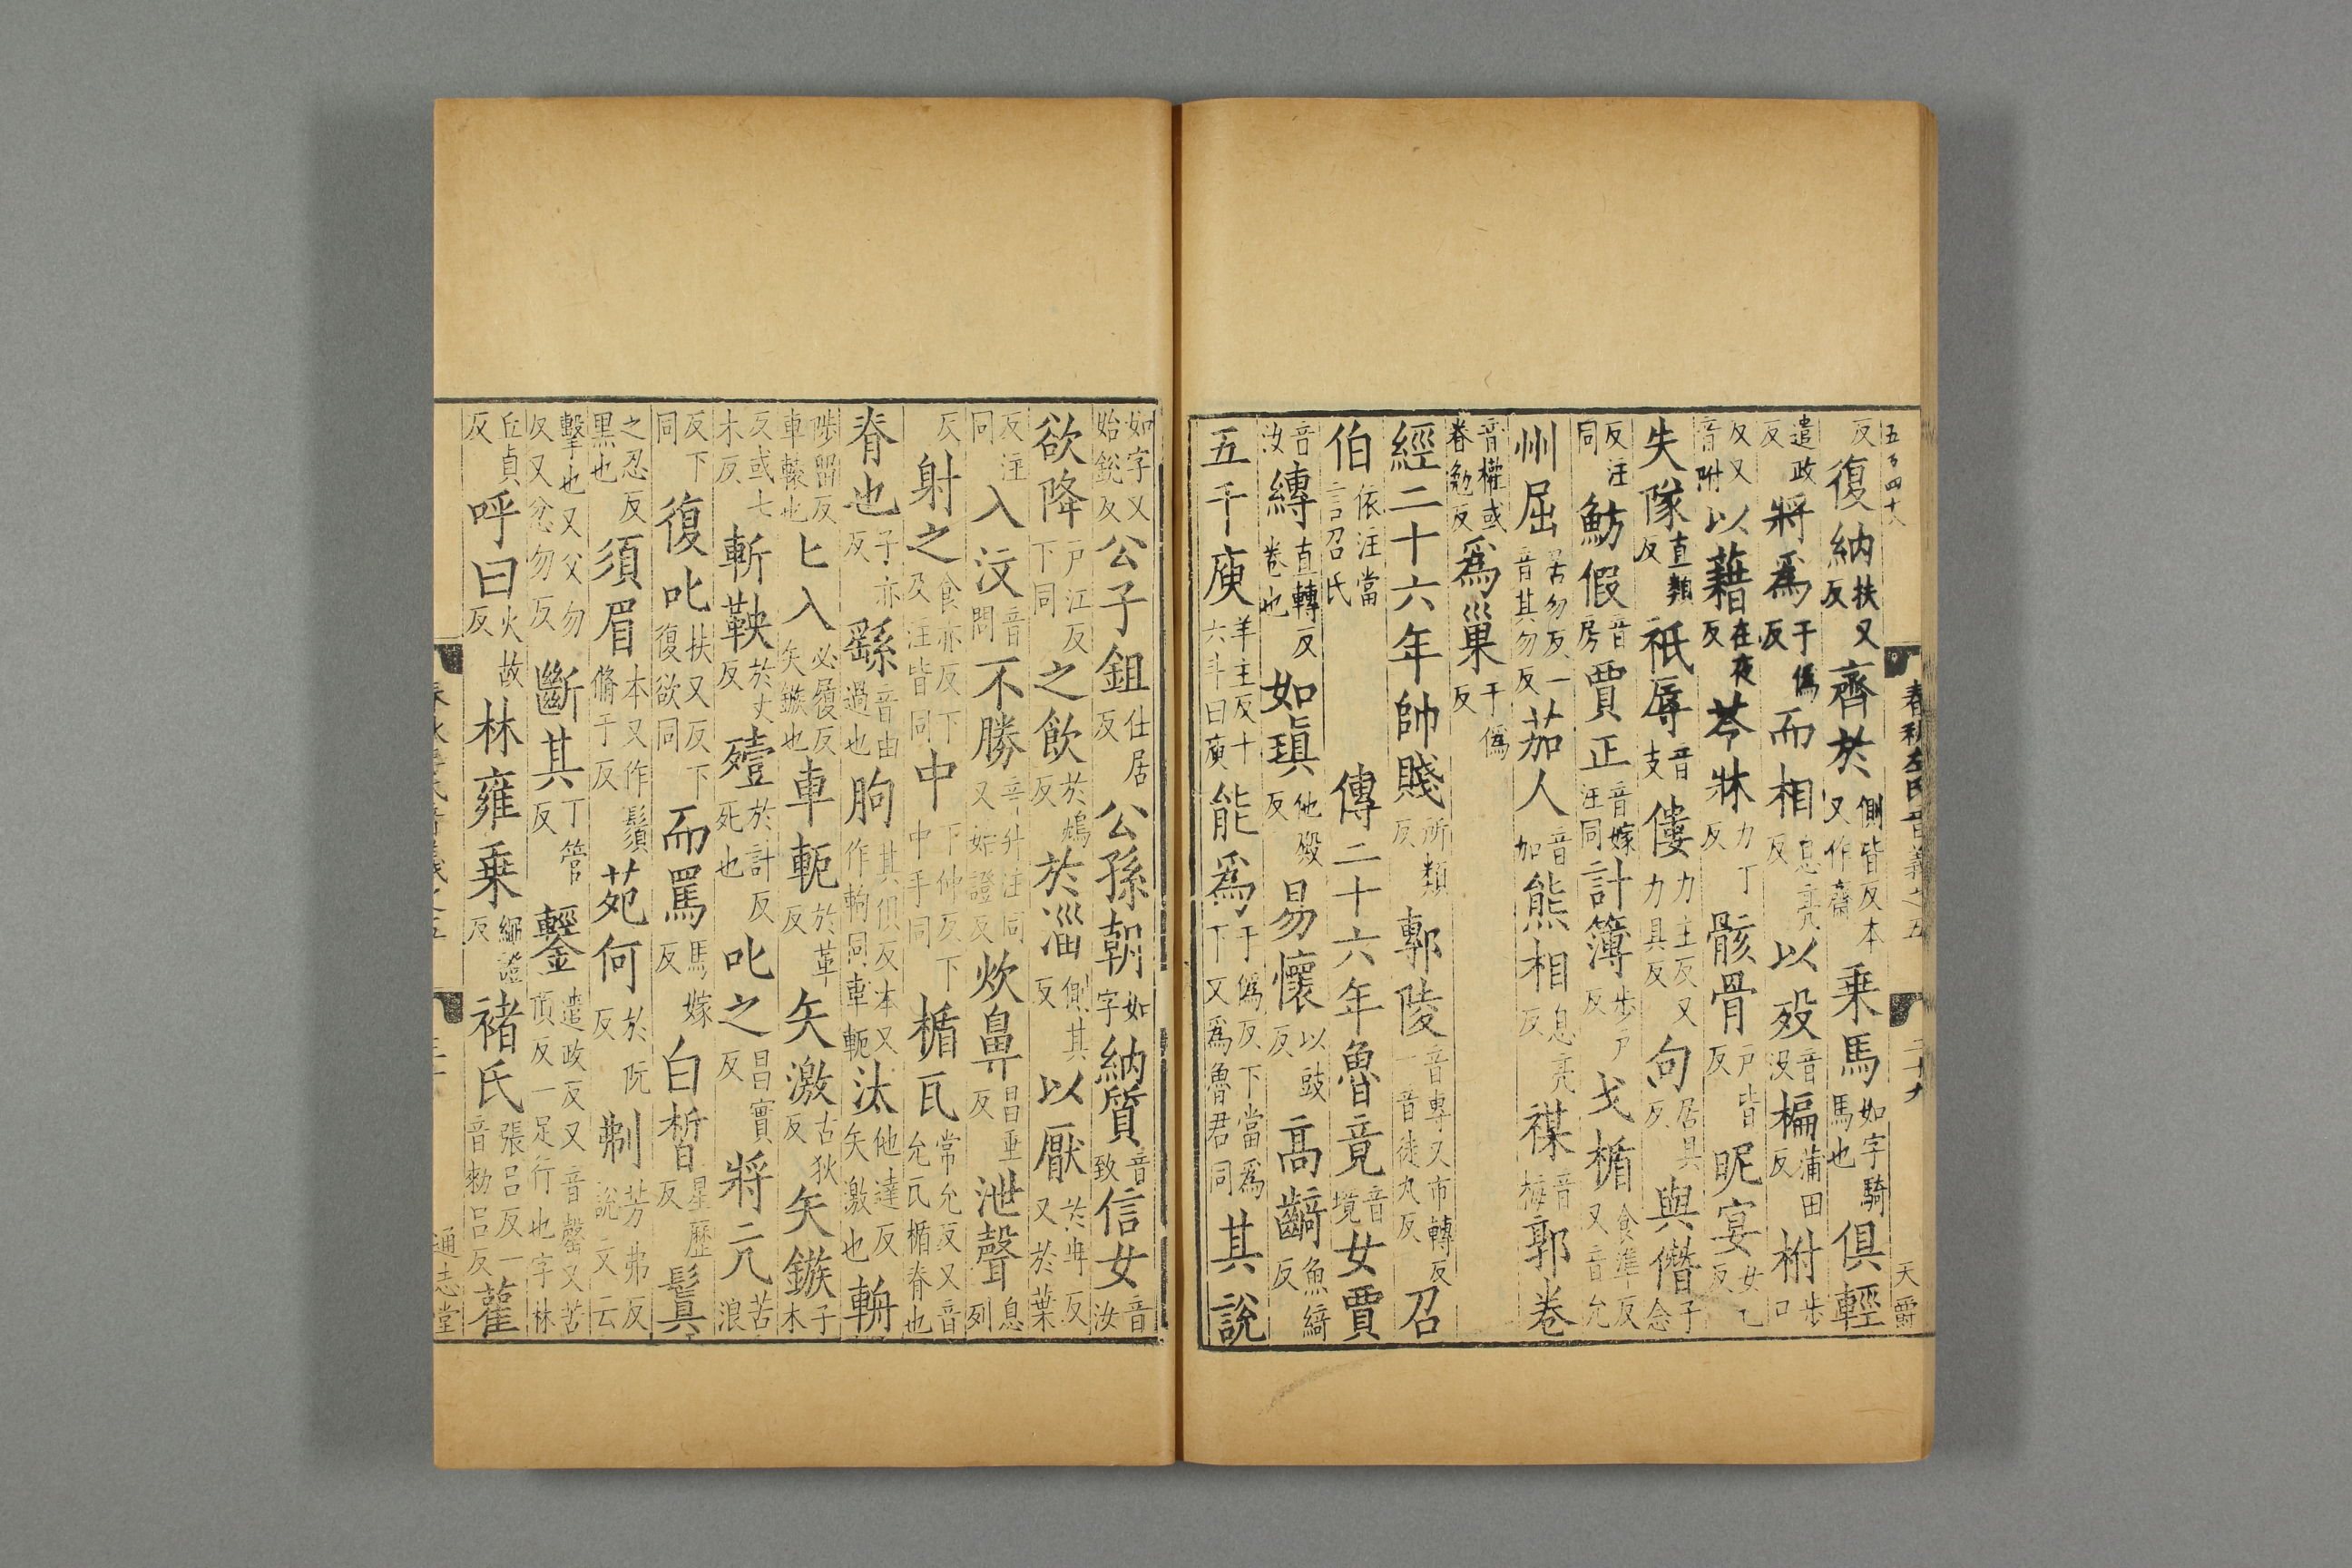 五百四十八
春秋左氏音義之五
二十九
天爵
反復納扶又反齊於側皆反本又作齋乗馬如字騎馬也俱輕
遣政反將爲于僞反而相息亮反以歿音沒楄蒲田反柎步口
反又音附以藉在夜反苓牀力丁反骸骨户皆反昵宴女乙反
失隊直類反祗辱音支僂力主反又力具反句居具反與僭子念
反注同魴假音房賈正音嫁注同計簿步户反戈楯食準反又音允
州屈居勿反一音其勿反茄人音加熊相息亮反禖音梅郭卷
音權或眷勉反爲巢于僞反
經二十六年帥賤所類反鄟陵音專又市轉反一音徒丸反召
伯依注當言召氏傳二十六年魯竟音境女賈
音汝縳直轉反卷也如瑱他殿反易懷以豉反高齮魚綺反
五千庾羊主反十六斗曰庾能爲于僞反下當爲下又爲魯君同其說
如字又始銳反公子鉏仕居反公孫朝如字納質音致信女音汝
欲降户江反下同之飮於鴆反於淄側其反以厭於冉反又於葉
反注同入汶音問不勝音升注同又始證反炊鼻昌垂反泄聲息列
反射之食亦反下及注皆同中下仲反下中手同楯瓦常允反又音允瓦楯脊也
脊也子亦反繇音由過也朐其俱反本又作軥同車軛汰他達反矢激也輈
陟留反車轅也匕入必履反矢鏃也車軛於革反矢激古狄反矢鏃子木
反或七木反斬鞅於丈反殪於計反死也叱之昌實反將亢苦浪
反下同復叱扶又反下復欲同而罵馬嫁反白皙星歷反鬒
之忍反黑也須眉本又作鬚脩于反苑何於阮反刜芳弗反說文云
擊也又父勿反又忿勿反斷其丁管反鑋遣政反又音磬又苦頂反一足行也字林
丘貞反呼曰火故反林雍乗繩證反褚氏張呂反一音勑呂反雚
春秋左氏音義之五
三十
通志堂